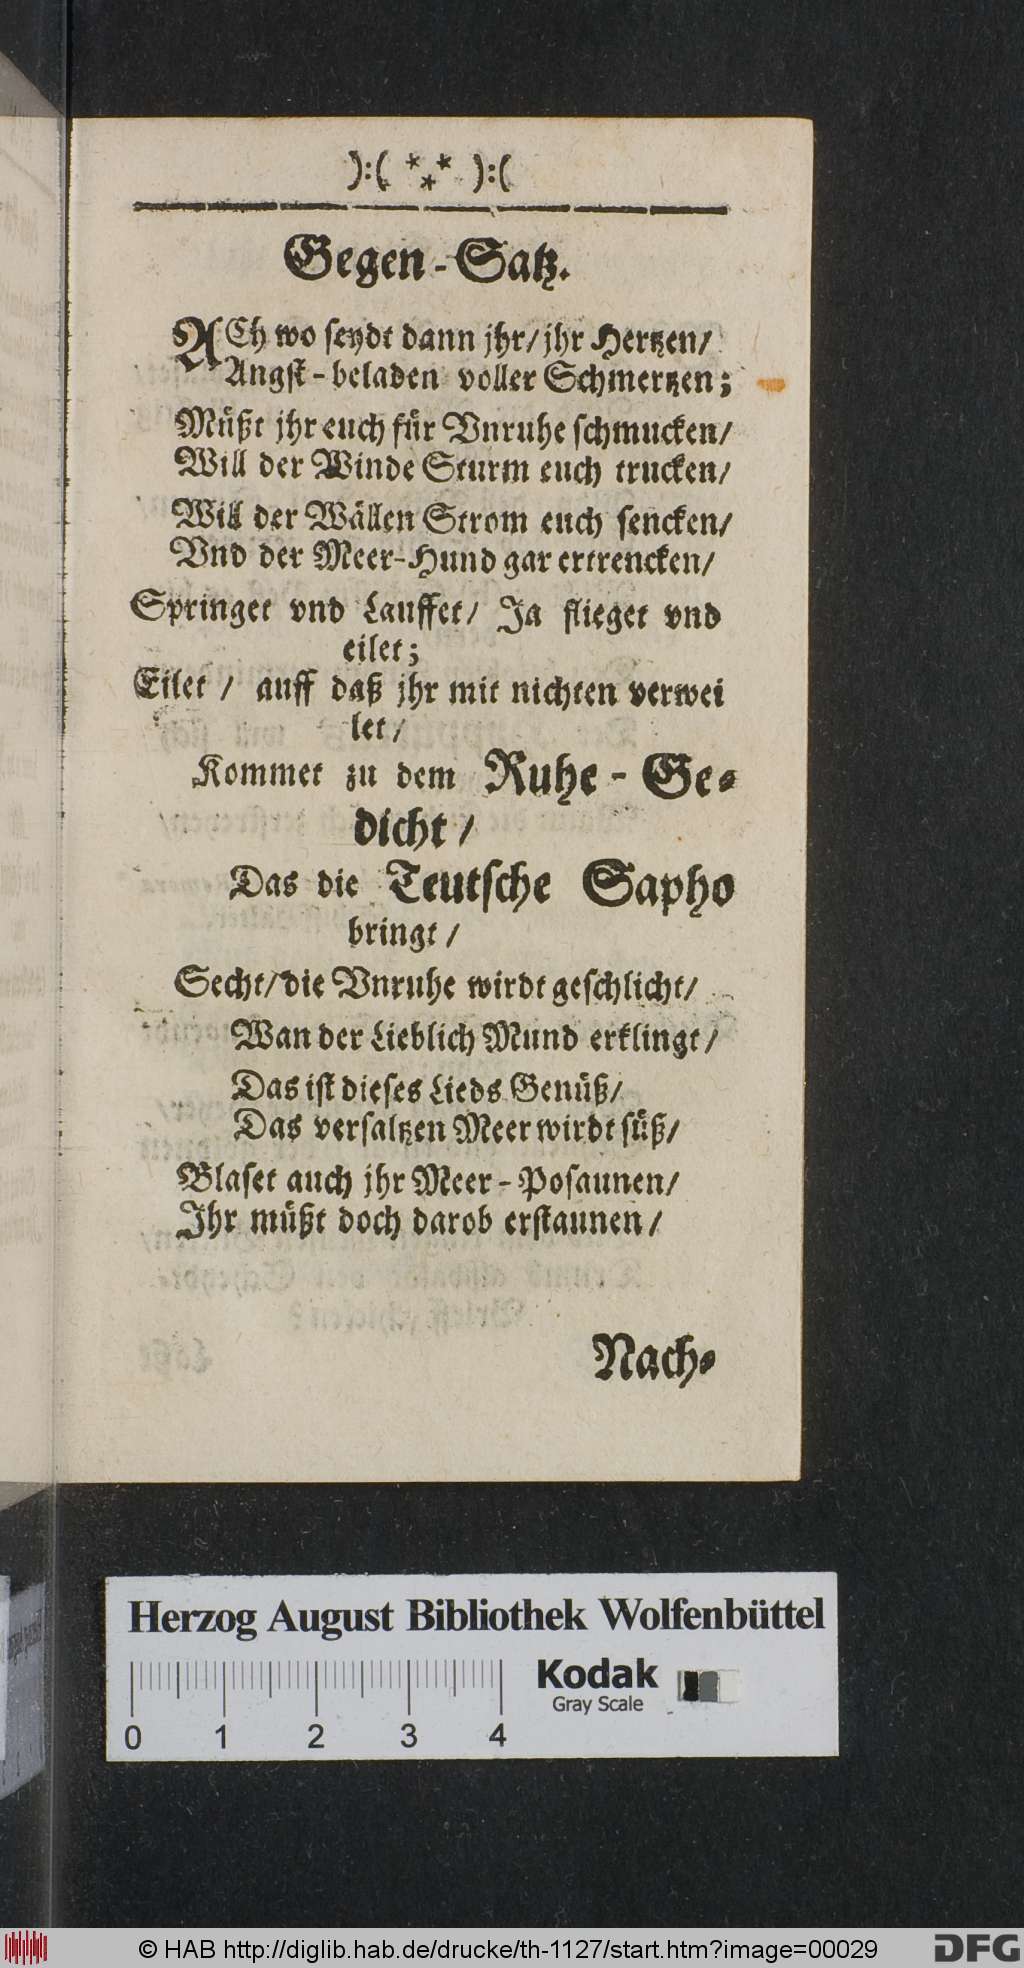 ):( *** ):(
Gegen-Satz.
ACh wo seydt dann jhr/ jhr Hertzen/
Angst-beladen voller Schmertzen;
Müßt jhr euch für Vnruhe schmucken/
Will der Winde Sturm euch trucken/
Will der Wällen Strom euch sencken/
Vnd der Meer-Hund gar ertrencken/
Springet vnd Lauffet/ Ja flieget vnd
eilet;
Eilet / auff daß jhr mit nichten verwei
let/
Kommet zu dem Ruhe-Ge-
dicht/
Das die Teutsche Sapho
bringt/
Secht/ die Vnruhe wirdt geschlicht/
Wan der Lieblich Mund erklingt/
Das ist dieses Lieds Genüß/
Das versaltzen Meer wirdt süß/
Blaset auch jhr Meer-Posaunen/
Ihr müßt doch darob erstaunen/
Nach-
Herzog August Bibliothek Wolfenbüttel
Kodak
Gray Scale
0 1 2 3 4
© HAB http://diglib.hab.de/drucke/th-1127/start.htm?image=00029
DFG